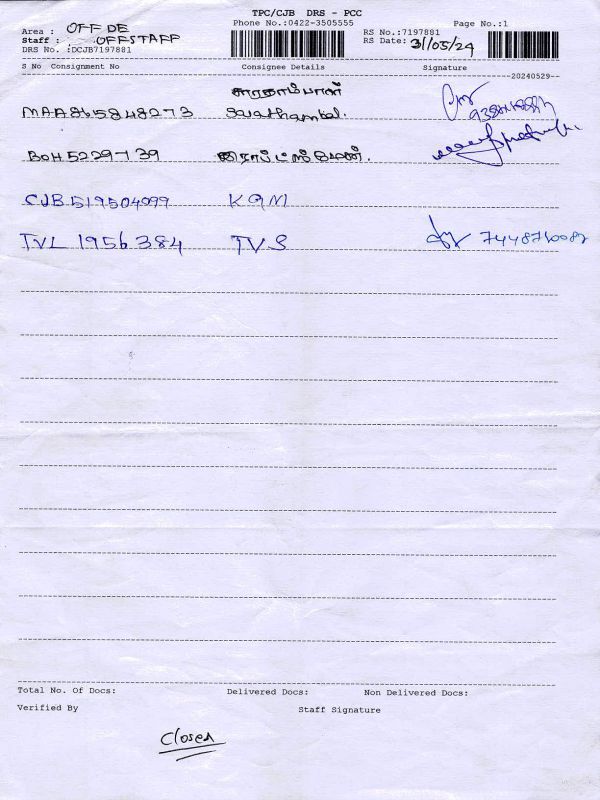 TPC/CJB DRS - PCC
Phone No.:0422-3505555 Page No.:1
Area : OFF DE RS No.:7197881
Staff : OFFSTAFF RS Date: 31/05/24
DRS No. :DCJB7197881
S No Consignment No Consignee Details Signature
--20240529--
MAA865848273
BOH5229739
CJB519504099 KGM
TVL 1956384 TVS 7448760082
Total No. Of Docs: Delivered Docs: Non Delivered Docs:
Verified By Staff Signature
Closed